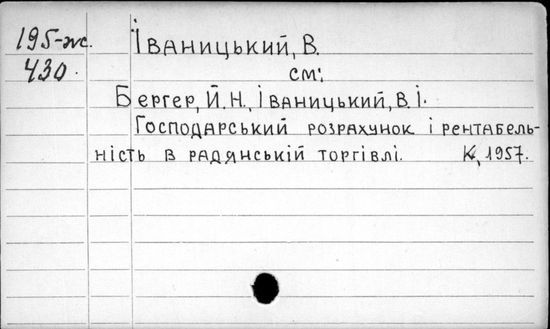 195-ж.
430.
Іваницький, В.
см:
Бергер, Й. Н., Іваницький, В. І.
Господарський розрахунок і рентабель-
ність в радянській торгівлі. К, 1957.